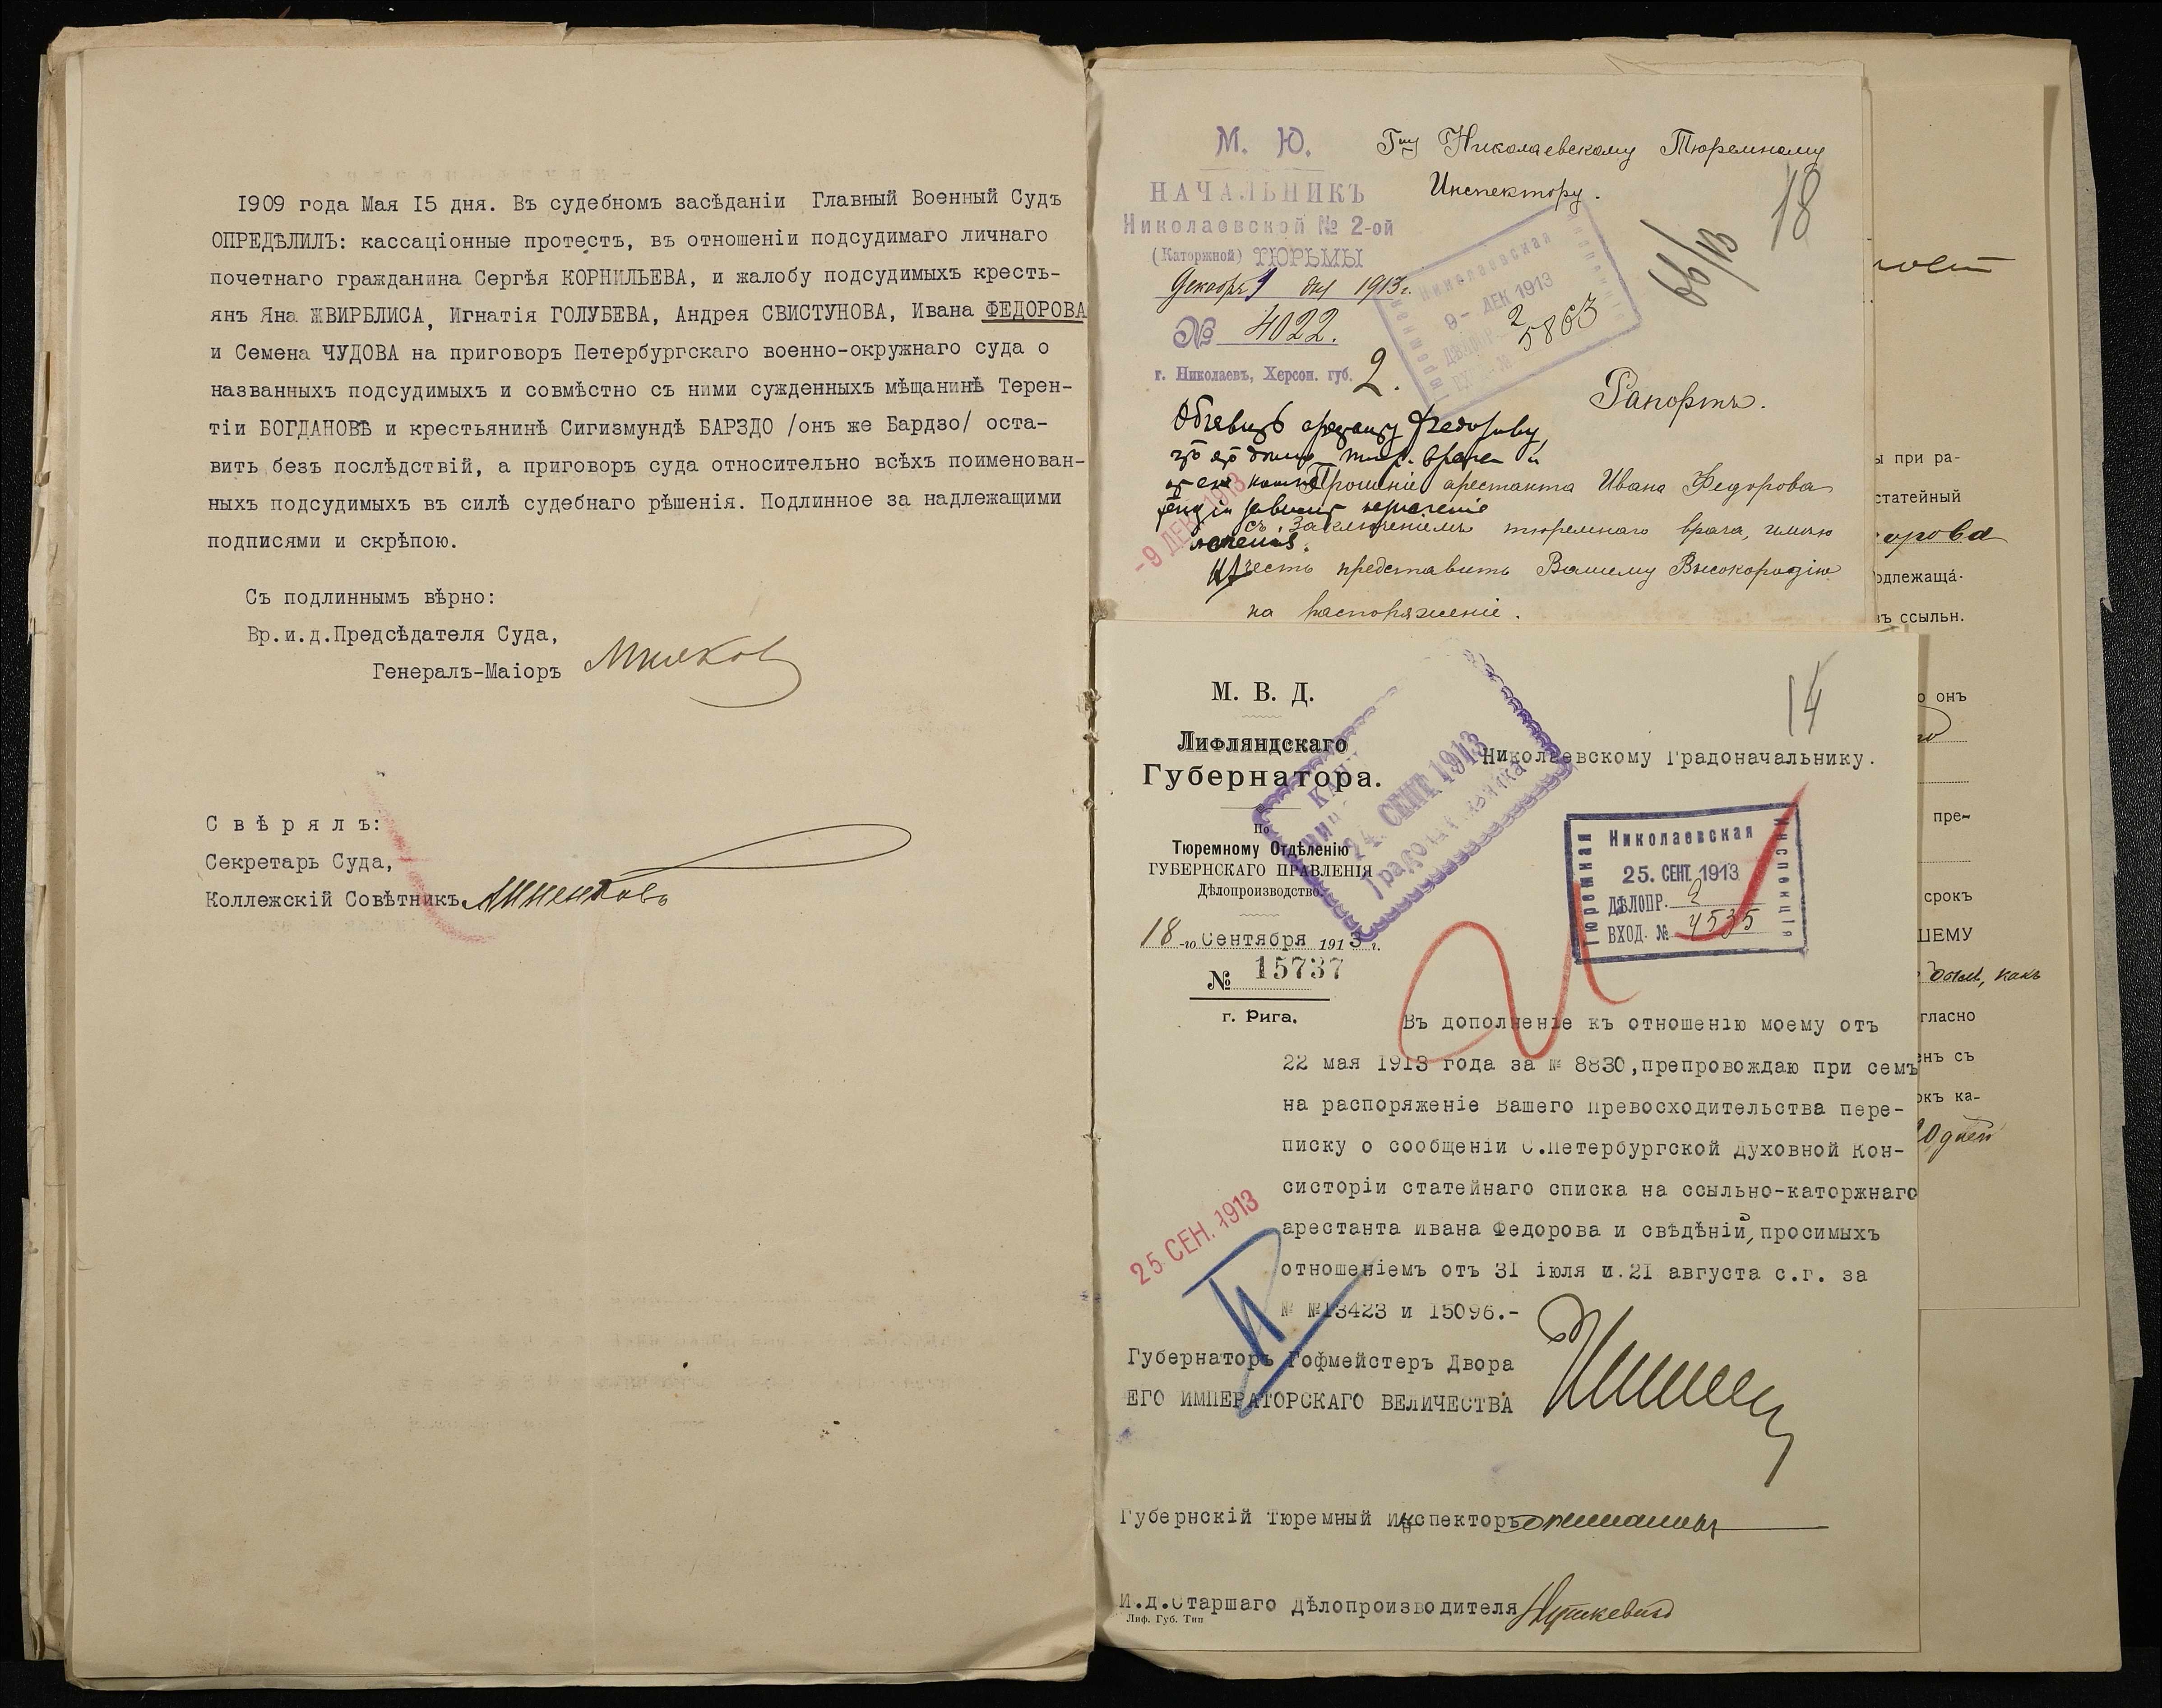 1909 года Мая 15 дня. Въ судебномъ засѣданіи Главный Военный Судъ
ОПРЕДѢЛИЛЪ: кассаціонные протестъ, въ отношеніи подсудимаго личнаго
почетнаго гражданина Сергѣя КОРНИЛЬЕВА, и жалобу подсудимыхъ кресть-
янъ Яна ЖВИРБЛИСА, Игнатія ГОЛУБЕВА, Андрея СВИСТУНОВА, Ивана ФЕДОРОВА
и Семена ЧУДОВА на приговоръ Петербургскаго военно-окружнаго суда о
названныхъ подсудимыхъ и совмѣстно съ ними сужденныхъ мѣщанинѣ Терен-
тіи БОГДАНОВѢ и крестьянинѣ Сигизмундѣ БАРЗДО /онъ же Бардзо/ оста-
вить безъ послѣдствій, а приговоръ суда относительно всѣхъ поименован-
ныхъ подсудимыхъ въ силѣ судебнаго рѣшенія. Подлинное за надлежащими
подписями и скрѣпою.
Съ подлиннымъ вѣрно:
Вр.и.д.Предсѣдателя Суда,
Генералъ-Маіоръ
Свѣрялъ:
Секретарь Суда,
Коллежскій Совѣтникъ
М. Ю.
НАЧАЛЬНИКЪ
Николаевской № 2-ой
(Каторжной) ТЮРЬМЫ
Декабря 9 дня 1913 г.
№ 4022.
г. Николаевъ, Херсон. губ.
Гну Николаевскому Тюремному
Инспектору.
18
66/13
Николаевская
9- ДЕК 1913
2
5863
2.
Рапортъ.
Объявить арестанту Федорову,
Прошеніе арестанта Ивана Федорова
съ заключеніемъ тюремнаго врача, имѣю
честь представить Вашему Высокородію
на распоряженіе.
-9 ДЕК 1913
М. В. Д.
Лифляндскаго
Губернатора.
По
Тюремному Отдѣленію
ГУБЕРНСКАГО ПРАВЛЕНІЯ
Дѣлопроизводство
18-го Сентября 1913 г.
№ 15737
г. Рига.
14
24. СЕНТ 1913
Николаевскому Градоначальнику.
Николаевская
Тюремная
Инспекція
25. СЕНТ. 1913
ДѢЛОПР. 2
ВХОД. № 4535
Въ дополненіе къ отношенію моему отъ
22 мая 1913 года за № 8830, препровождаю при семъ
на распоряженіе Вашего Превосходительства пере-
писку о сообщеніи С.Петербургской Духовной Кон-
систоріи статейнаго списка на ссыльно-каторжнаго
арестанта Ивана Федорова и свѣдѣній, просимыхъ
отношеніемъ отъ 31 іюля и.21 августа с.г. за
№ №13423 и 15096.-
25 СЕН. 1913
Губернаторъ Гофмейстеръ Двора
ЕГО ИМПЕРАТОРСКАГО ВЕЛИЧЕСТВА
Губернскій Тюремный Инспекторъ
И.д.Старшаго Дѣлопроизводителя
Лиф. Губ. Тип
ы при ра-
статейный
орова
одлежаща-
въ ссыльн.
о онъ
пре-
срокъ
ШЕМУ
какъ
гласно
енъ съ
окъ ка-
дней